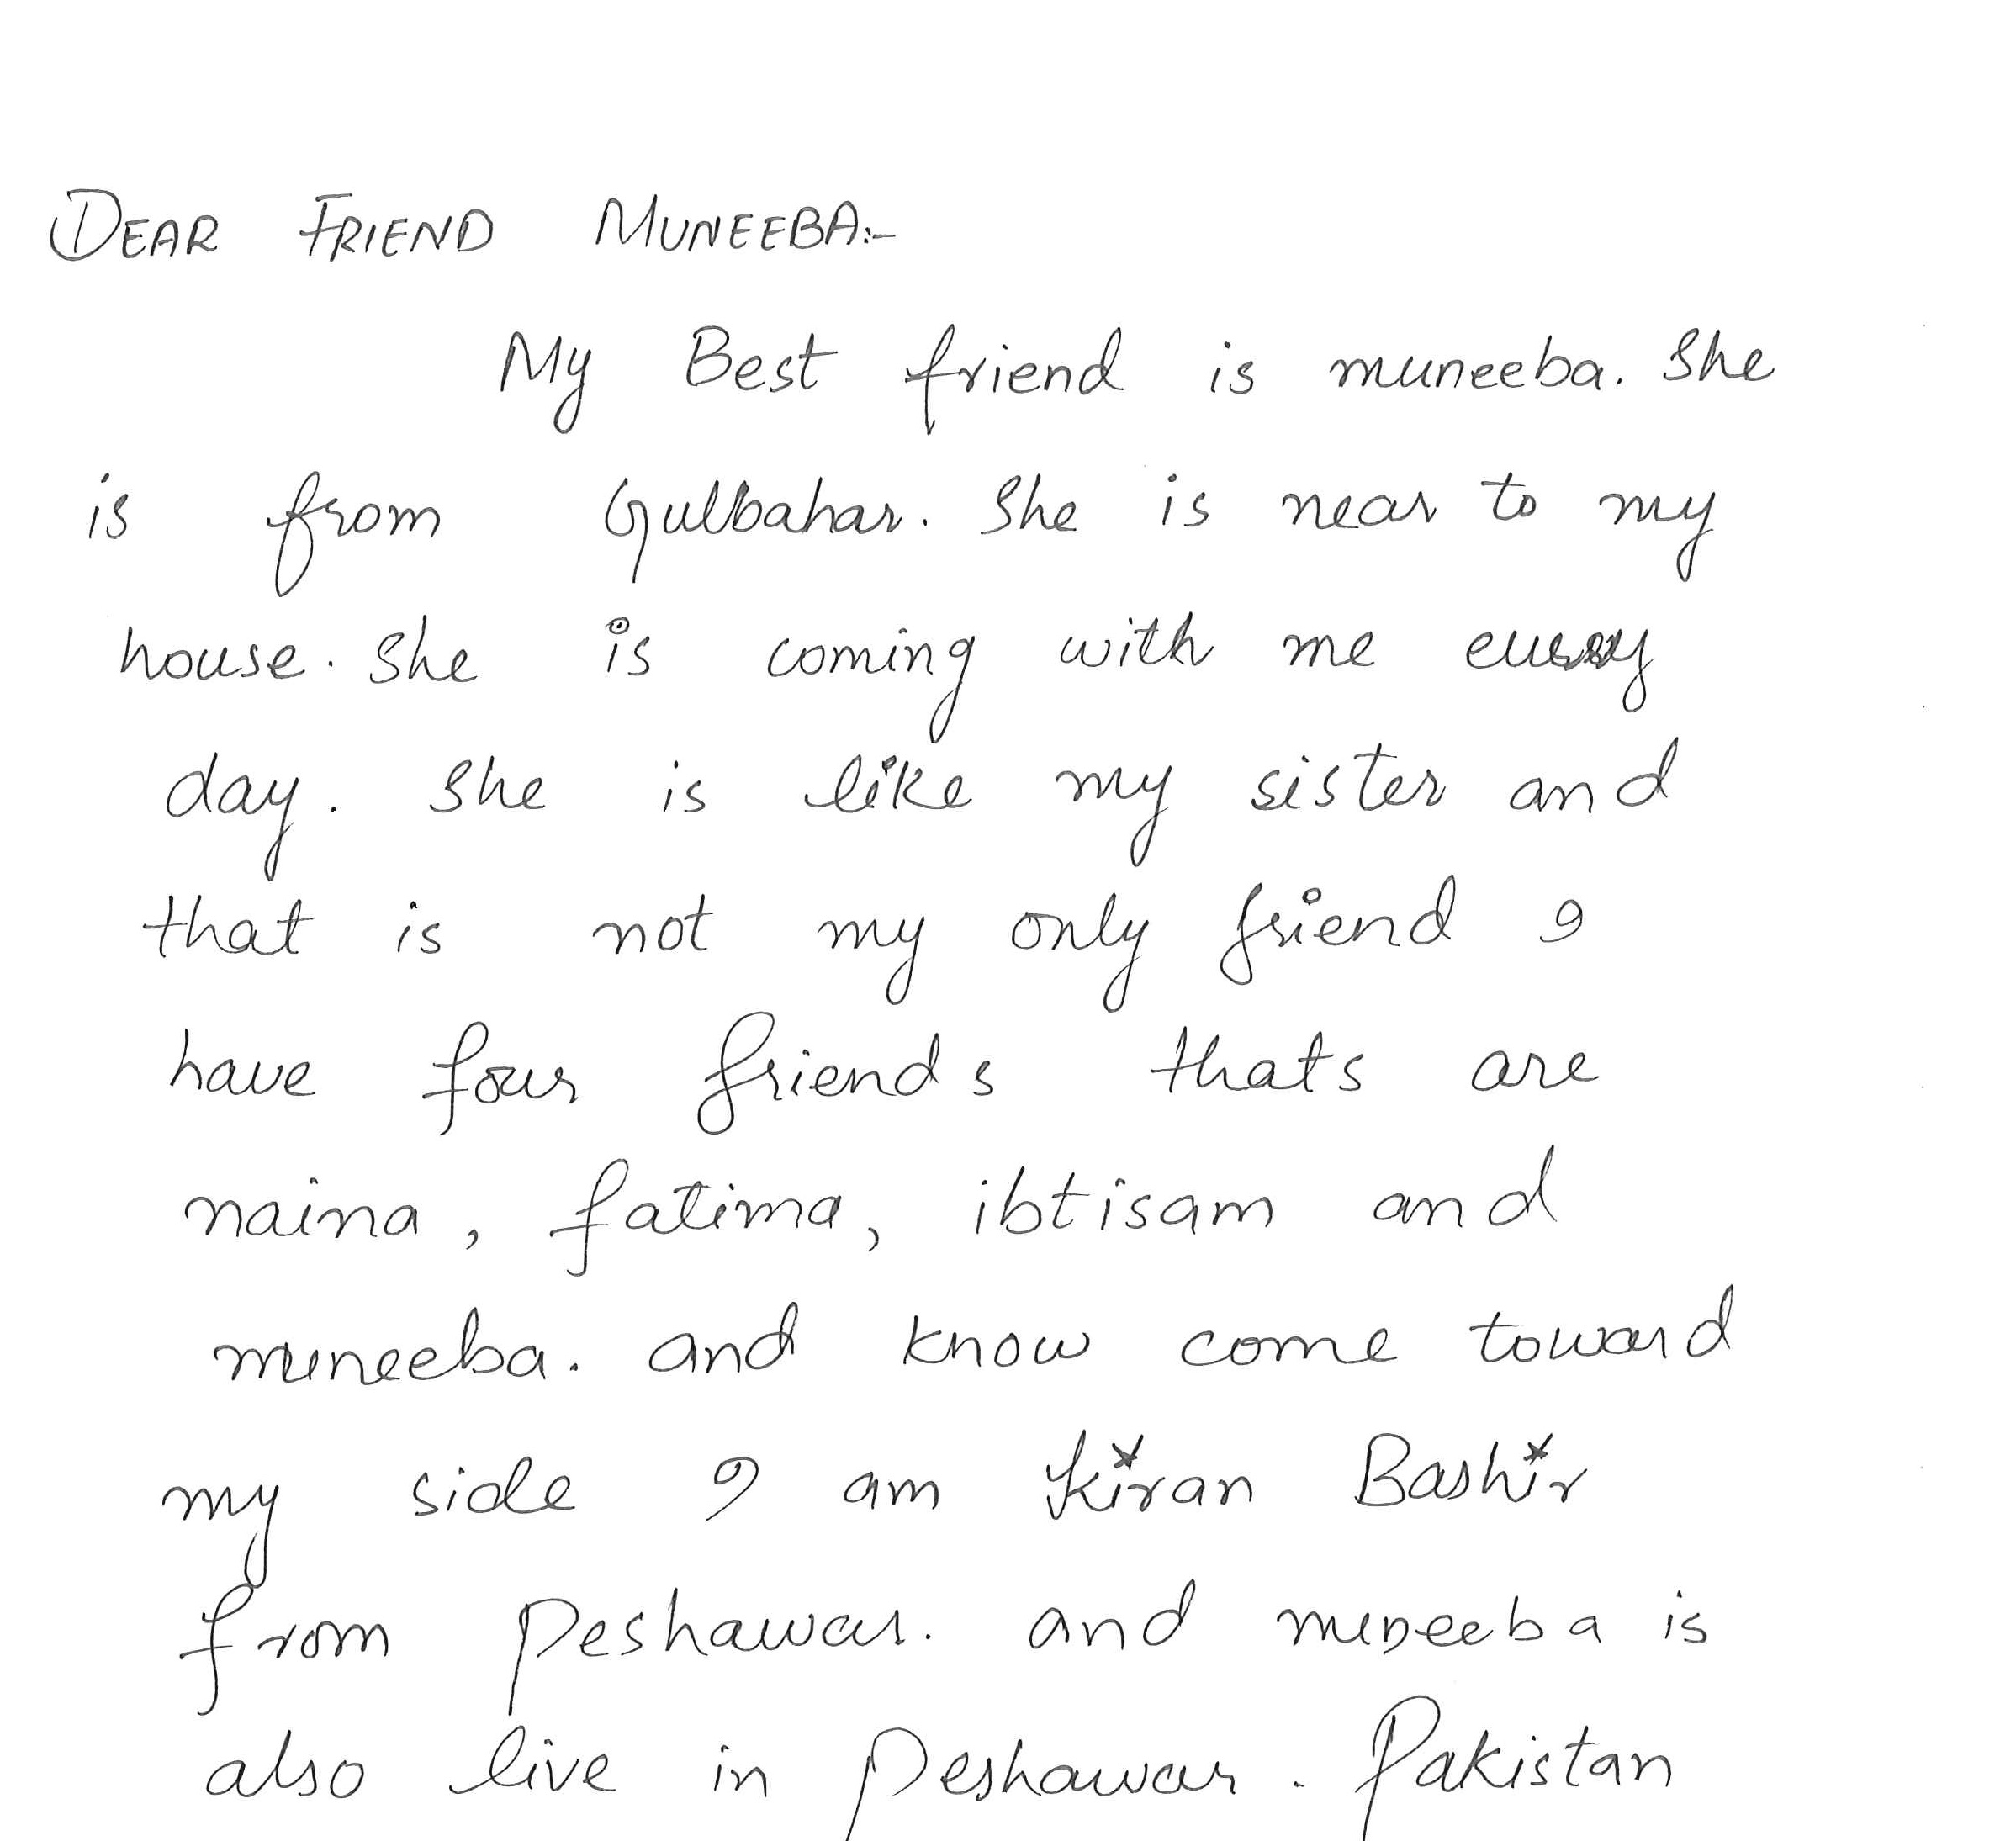 DEAR FRIEND MUNEEBA:-
My Best friend is muneeba. She
is from Gulbahar. She is near to my
house. She is coming with me every
day. She is like my sister and
that is not my only friend I
have four friends thats are
naina, fatima, ibtisam and
muneeba. and know come toward
my side I am Kiran Bashir
from Peshawar. and muneeba is
also live in Peshawar. Pakistan